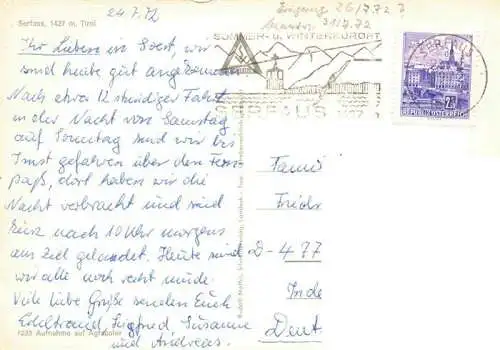 24.7.72
Serfaus, 1427 m, Tirol
Eingang 26/7.72
31/7.72
SOMMER- U. WINTERKURORT
SERFAUS
2S
REPUBLIK ÖSTERREICH
Ihr Lieben in Soest, wir
sind heute gut angekommen.
Nach etwa 12 stündiger Fahrt
in der Nacht von Samstag
auf Sonntag sind wir bis
Imst gefahren über den Fern-
paß, dort haben wir die
Nacht verbracht und sind
kurz nach 10 Uhr morgens
am Ziel gelandet. Heute sind
wir alle noch recht müde.
Viele liebe Grüße senden Euch
Edeltraud, Siegfried, Susanne
und Andreas.
Famil
Friedr
D-477
In de
Deut
Rudolf Mathis, Landeck - Tirol
7235 Aufnahme auf Agfacolor